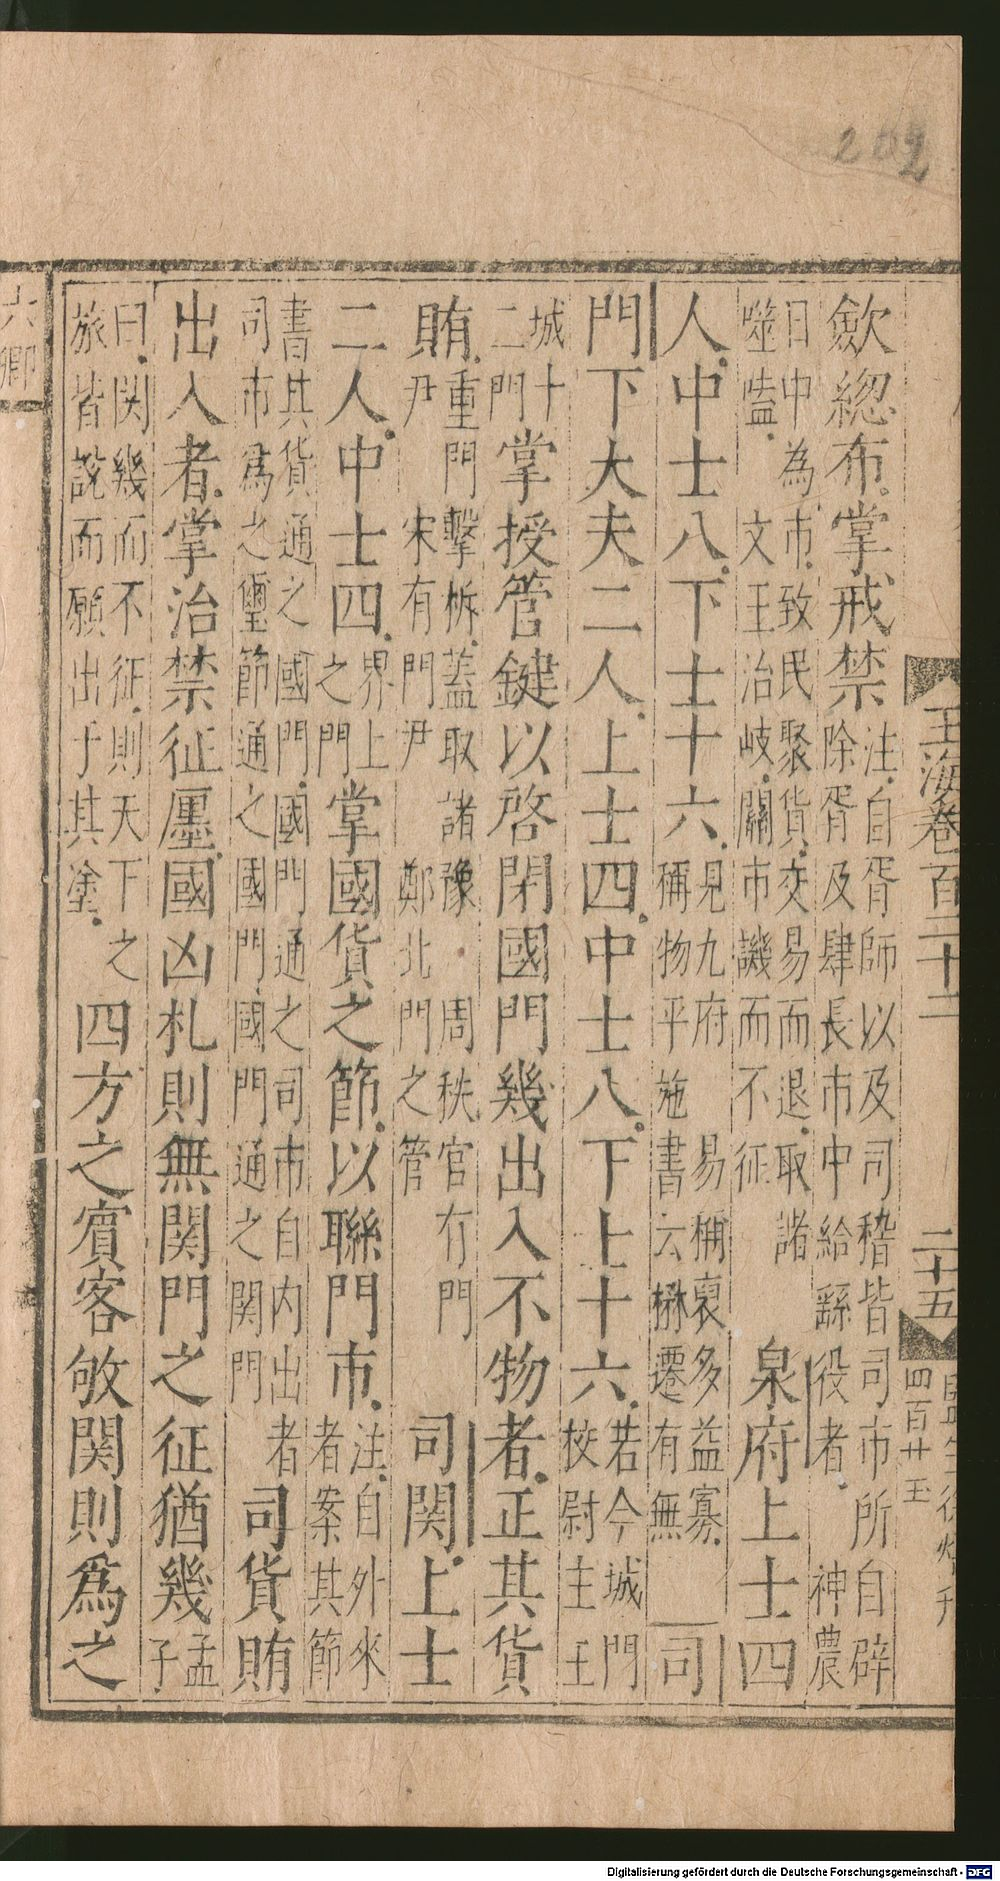 202
玉海卷百二十二
二十五
四百廿五
歛緫布掌戒禁注自胥師以及司稽皆司市所自辟除胥及肆長市中給繇役者神農
日中為市致民聚貨交易而退取諸噬嗑文王治岐關市譏而不征泉府上士四
人中士八下士十六見九府稱物平施易稱裒多益寡書云楙遷有無司
門下大夫二人上士四中士八下士十六若今城門校尉主王
城十二門掌授管鍵以啓閉國門幾出入不物者正其貨
賄重門擊柝蓋取諸豫周秩官有門尹宋有門尹鄭北門之管司関上士
二人中士四界上之門掌國貨之節以聯門市注自外來者案其節
書其貨通之國門國門通之司市自内出者司市為之璽節通之國門國門通之関門司貨賄
出入者掌治禁征廛國凶札則無関門之征猶幾孟子
曰関幾而不征則天下之旅皆說而願出于其塗四方之賓客敂関則爲之
六卿
Digitalisierung gefördert durch die Deutsche Forschungsgemeinschaft - DFG